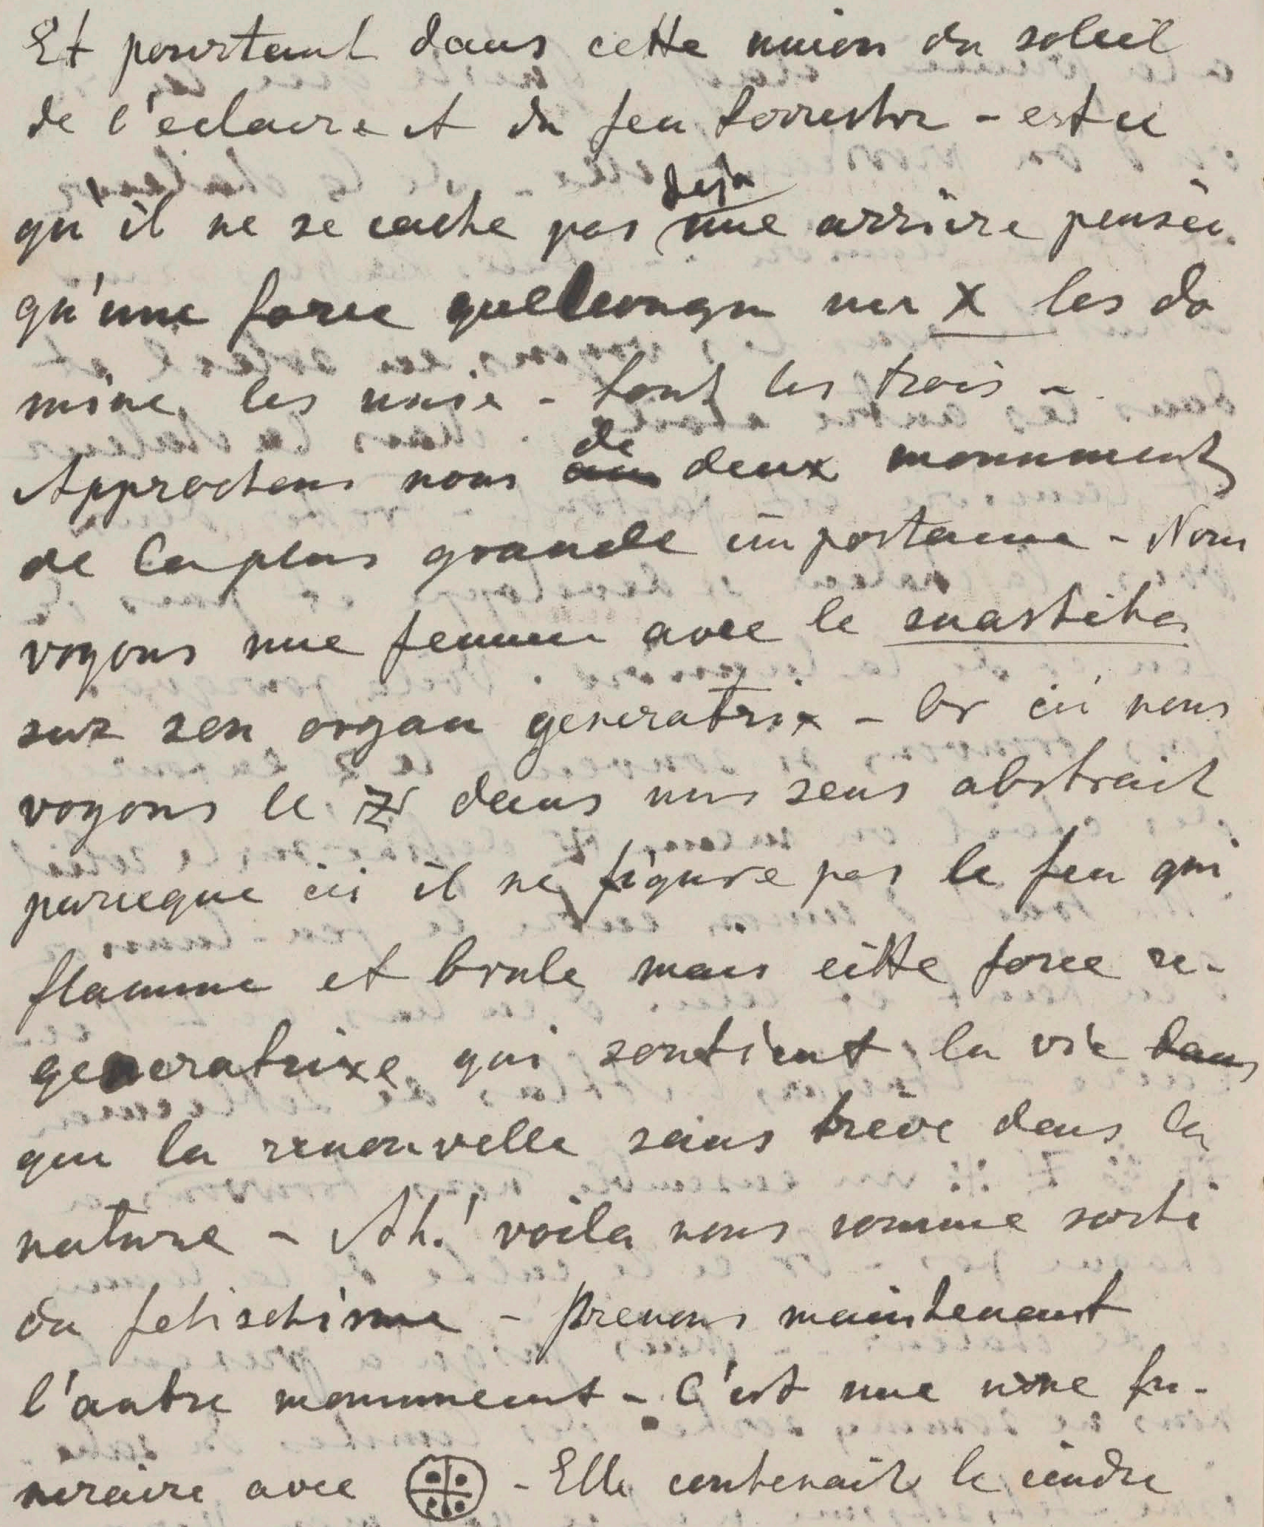 Et pourtant dans cette union du soleil
de l'eclaire et du feu terrestre - est ce
qu'il ne se cache pas deja une arrière pensée
qu'une force quelconque un X les do
mine, les unie - tout les trois -
Approchons nous de deux monuments
de la plus grande importance - Nous
voyons une femme avec le suastika
sur son organ generatrix - Or ici nous
voyons le 卐 dans un sens abstrait
parceque ici il ne figure pas le feu qui
flamme et brule mais cette force re-
generatrixe qui soutient la vie dans
que la renouvelle sans trève dans la
nature - Ah! voila nous somme sorti
du fetischisme - Prenons maintenant
l'autre monument - C'est une urne fu-
neraire avec - Elle contenait le cendre